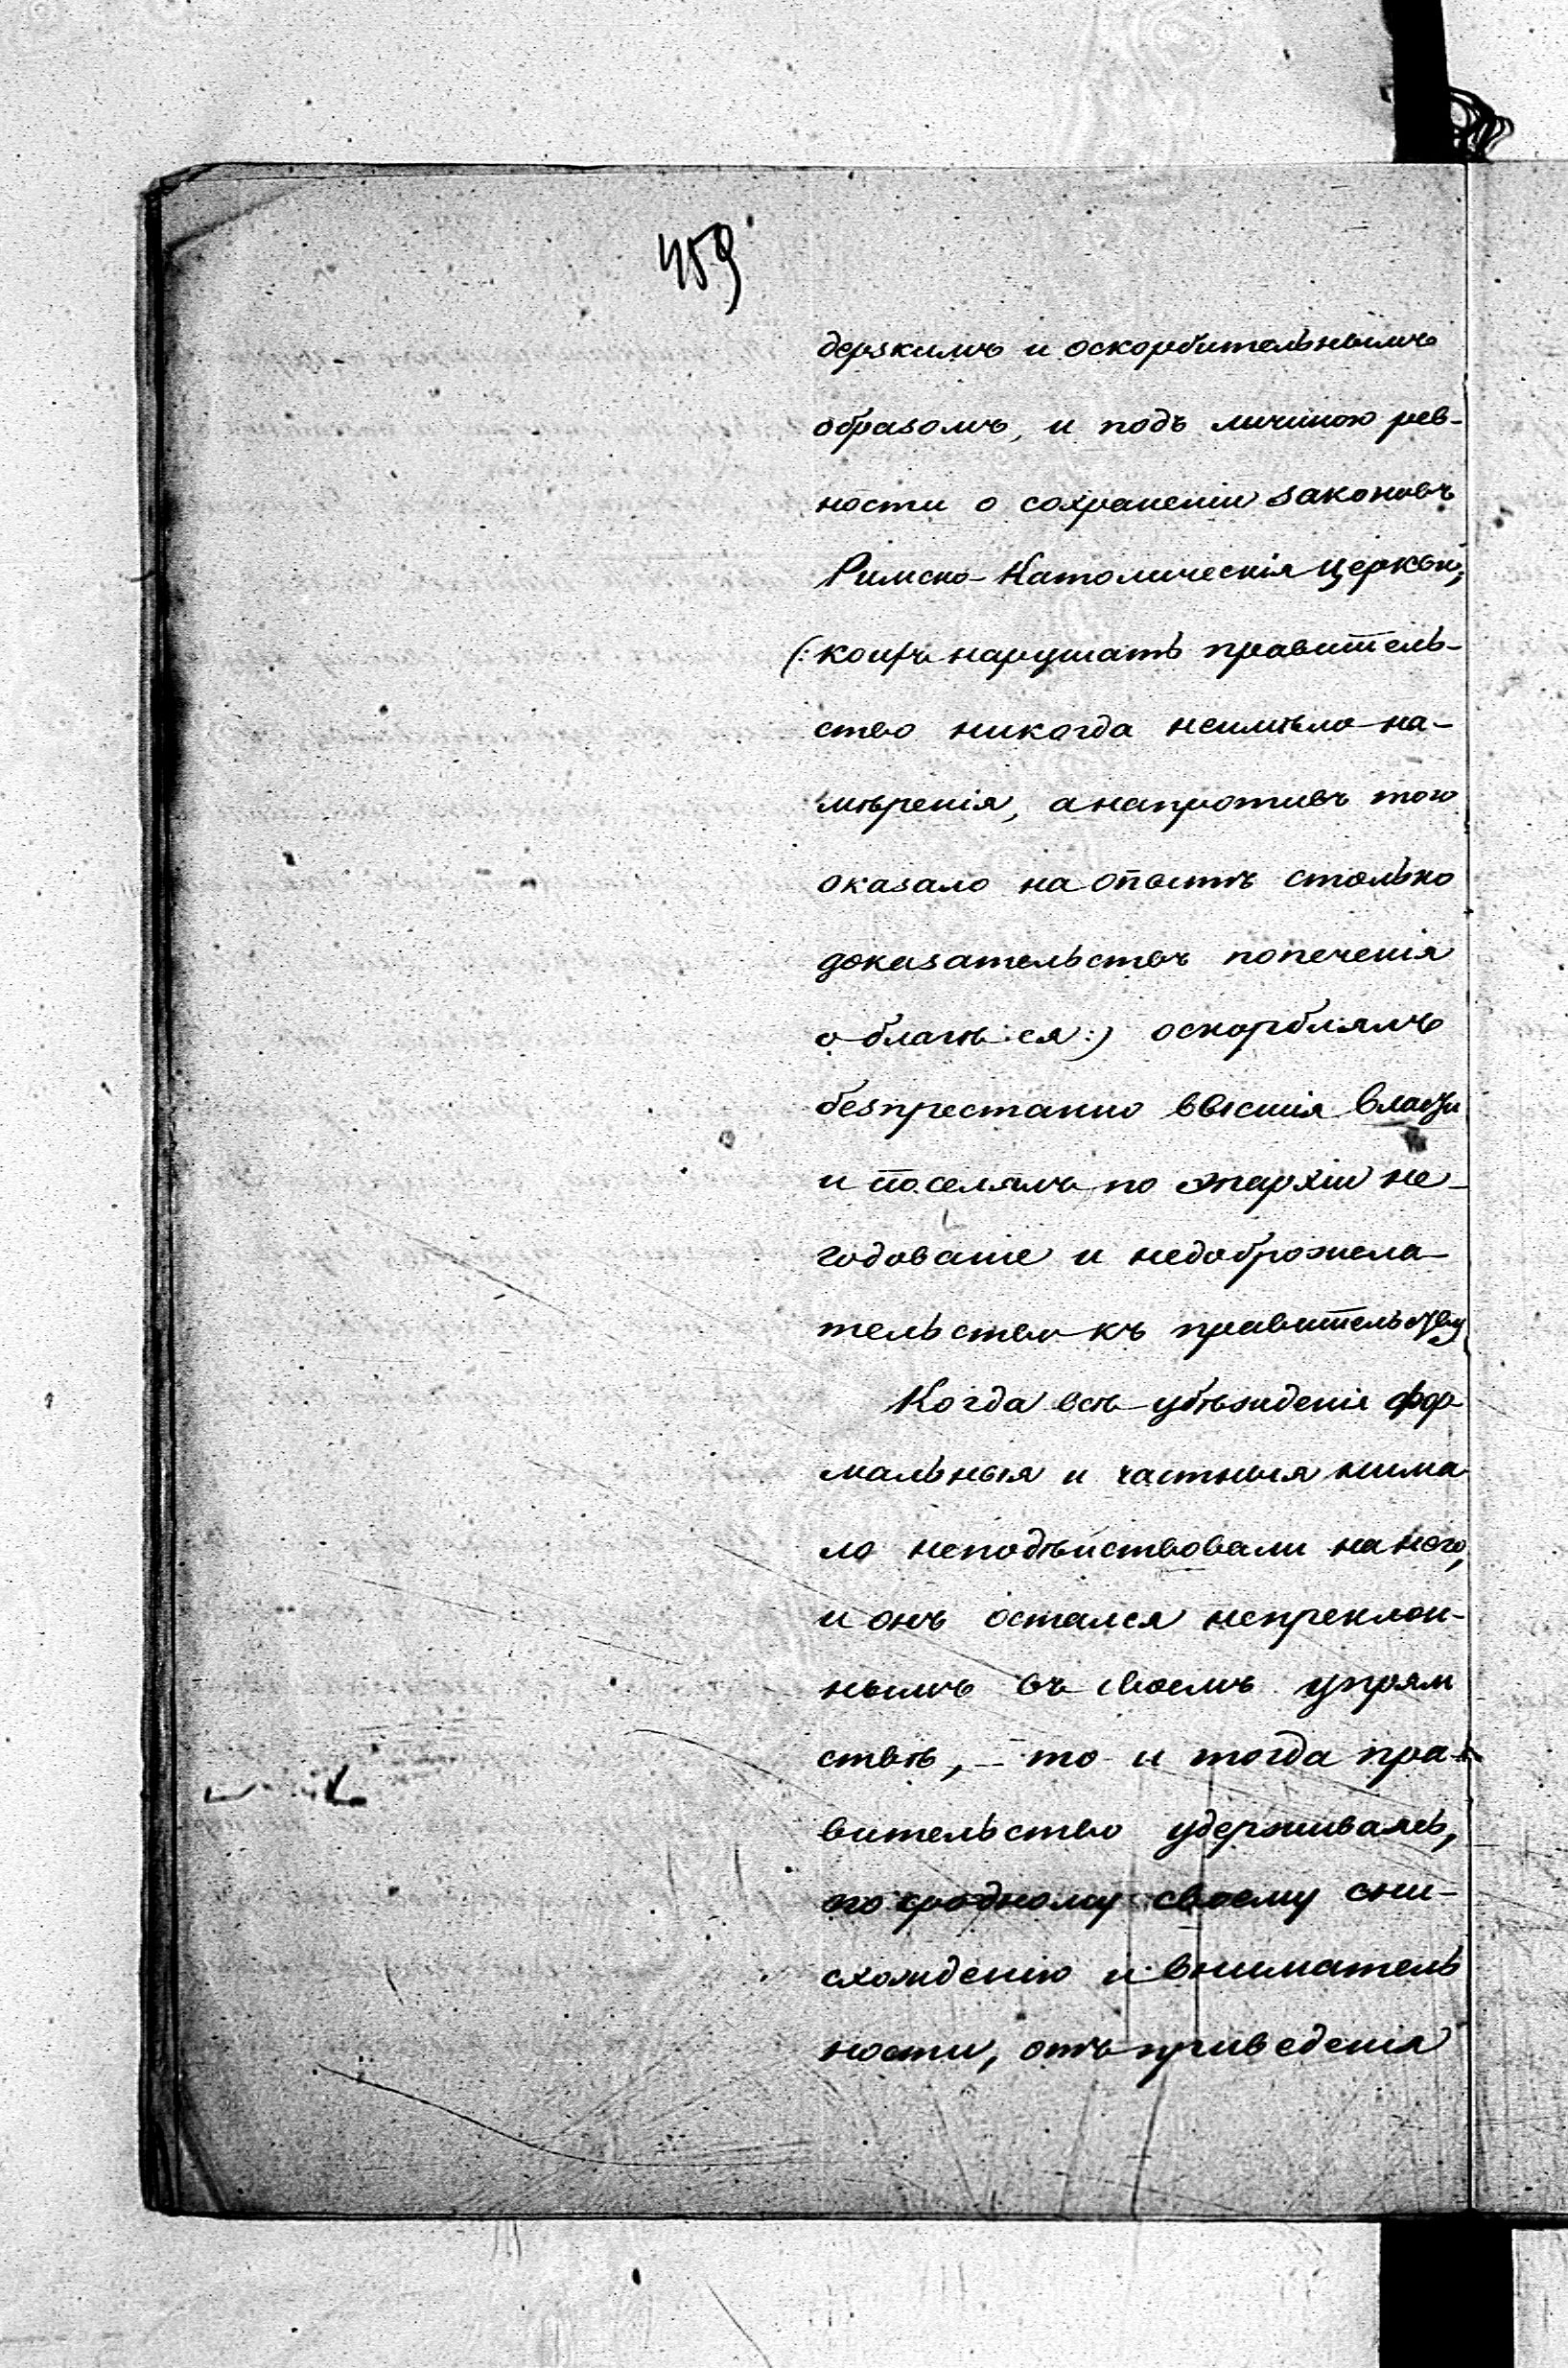 459
дерзкимъ и оскорбительнымъ
образомъ, и подъ личиною рев-
ности о сохраненіи законовъ
Римско-Католическія церкви,
(: коихъ нарушать правитель-
ство никогда неимѣло на-
мѣренія, а напротивъ того
оказало на опытѣ столько
доказательствъ попеченія
о благѣ ея :) оскорблялъ
безпрестанно высшія власти
и поселялъ по эпархіи не-
годованіе и недоброжела-
тельство къ правительству
Когда всѣ убѣжденія фор
мальныя и частныя нима
ло неподѣйствовали на него,
и онъ остался непреклон-
нымъ въ своемъ упрям
ствѣ, – то и тогда пра-
вительство удерживаясь,
по сродному своему сни-
схожденію и вниматель
ности, отъ приведенія